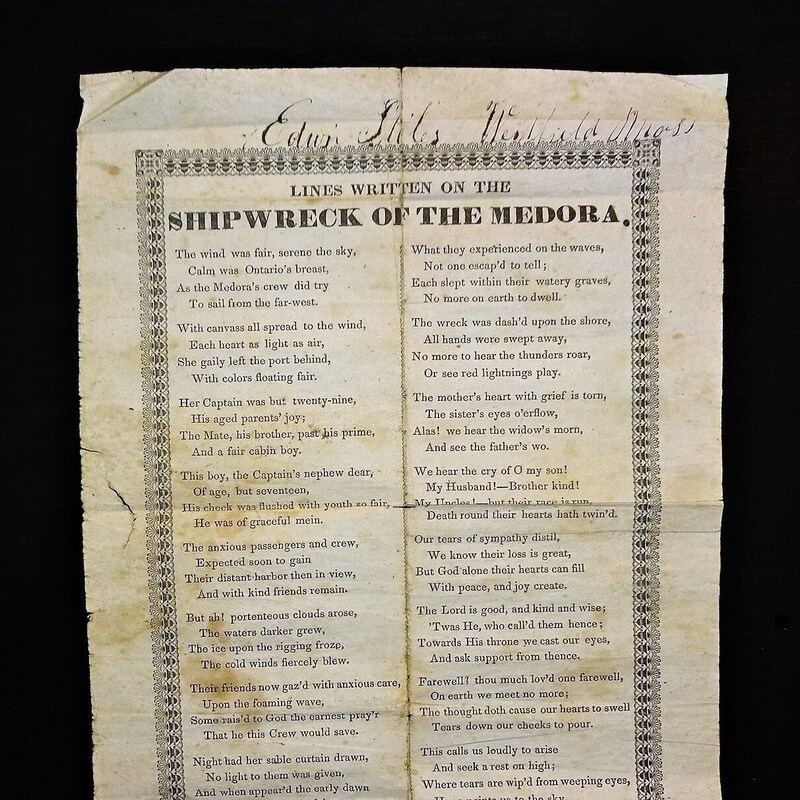 Edwin Stiles Westfield Mass
LINES WRITTEN ON THE
SHIPWRECK OF THE MEDORA.
The wind was fair, serene the sky,
Calm was Ontario's breast,
As the Medora's crew did try
To sail from the far-west.
With canvass all spread to the wind,
Each heart as light as air,
She gaily left the port behind,
With colors floating fair.
Her Captain was but twenty-nine,
His aged parents' joy;
The Mate, his brother, past his prime,
And a fair cabin boy.
This boy, the Captain's nephew dear,
Of age, but seventeen,
His cheek was flushed with youth so fair,
He was of graceful mein.
The anxious passengers and crew,
Expected soon to gain
Their distant harbor then in view,
And with kind friends remain.
But ah! portenteous clouds arose,
The waters darker grew,
The ice upon the rigging froze,
The cold winds fiercely blew.
Their friends now gaz'd with anxious care,
Upon the foaming wave,
Some rais'd to God the earnest pray'r
That he this Crew would save.
Night had her sable curtain drawn,
No light to them was given,
And when appear'd the early dawn
What they experienced on the waves,
Not one escap'd to tell;
Each slept within their watery graves,
No more on earth to dwell.
The wreck was dash'd upon the shore,
All hands were swept away,
No more to hear the thunders roar,
Or see red lightnings play.
The mother's heart with grief is torn,
The sister's eyes o'erflow,
Alas! we hear the widow's morn,
And see the father's wo.
We hear the cry of O my son!
My Husband!—Brother kind!
My Uncles!—but their race is run,
Death round their hearts hath twin'd.
Our tears of sympathy distil,
We know their loss is great,
But God alone their hearts can fill
With peace, and joy create.
The Lord is good, and kind and wise;
'Twas He, who call'd them hence;
Towards His throne we cast our eyes,
And ask support from thence.
Farewell? thou much lov'd one farewell,
On earth we meet no more;
The thought doth cause our hearts to swell
Tears down our cheeks to pour.
This calls us loudly to arise
And seek a rest on high;
Where tears are wip'd from weeping eyes,
us to the sky